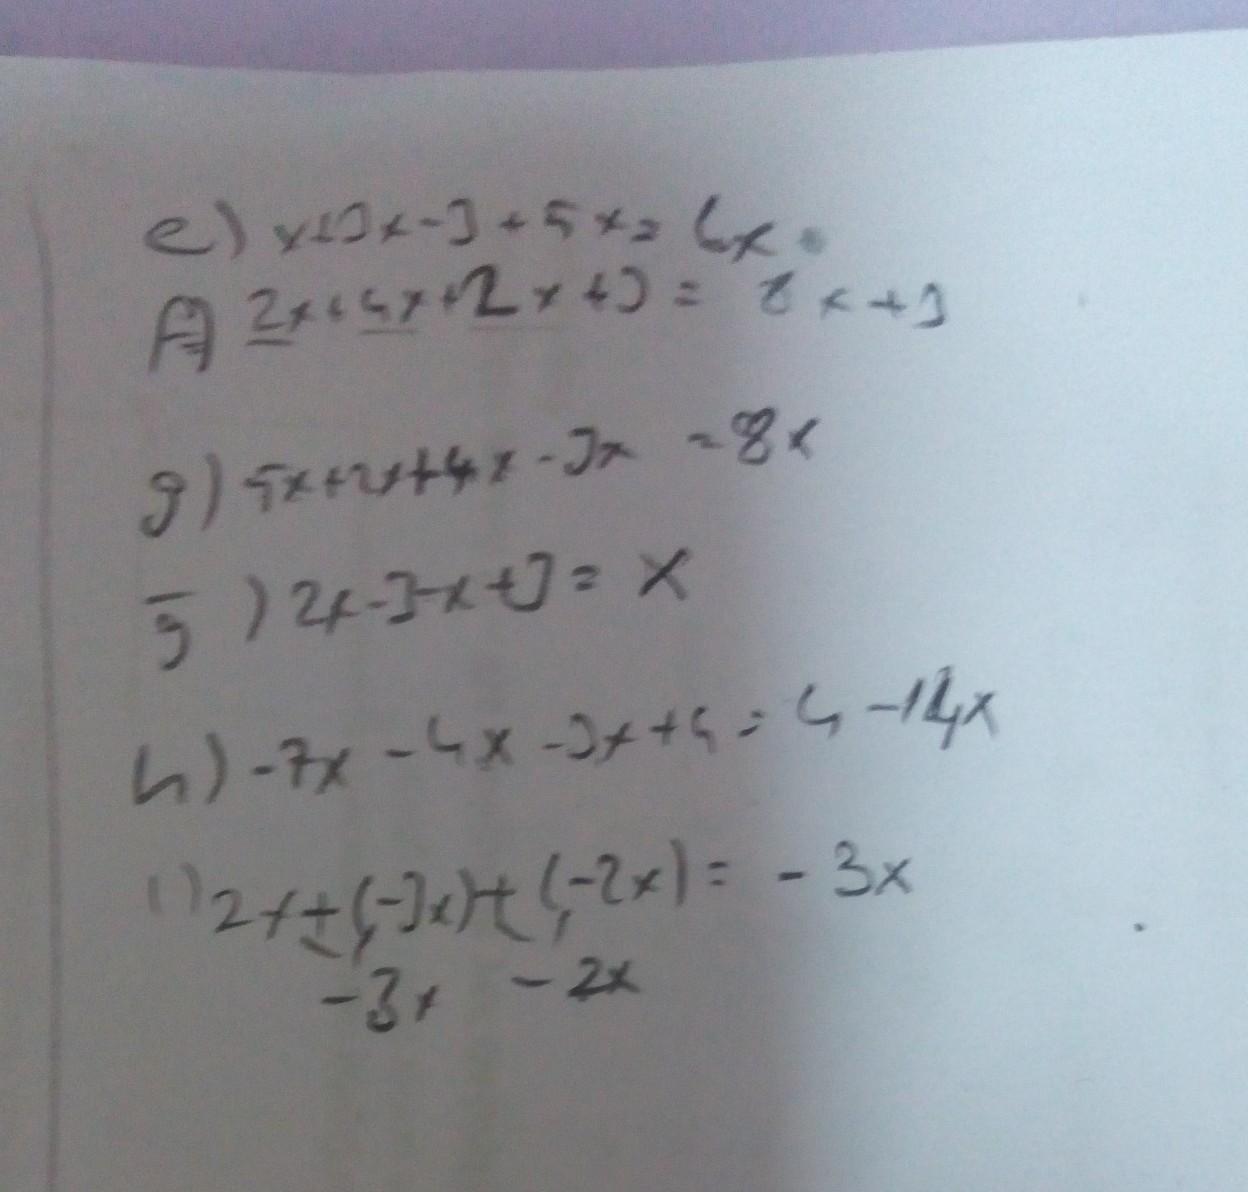 e) x+3x-3+5x= 6x
f) 2x+4x+2x+3= 8x+3
g) 5x+2x+4x-3x =8x
ğ) 2x-3-x+3= x
h) -7x -4x -3x+4= 4-14x
ı) 2x+(-3x)+(-2x)= -3x
-3x -2x